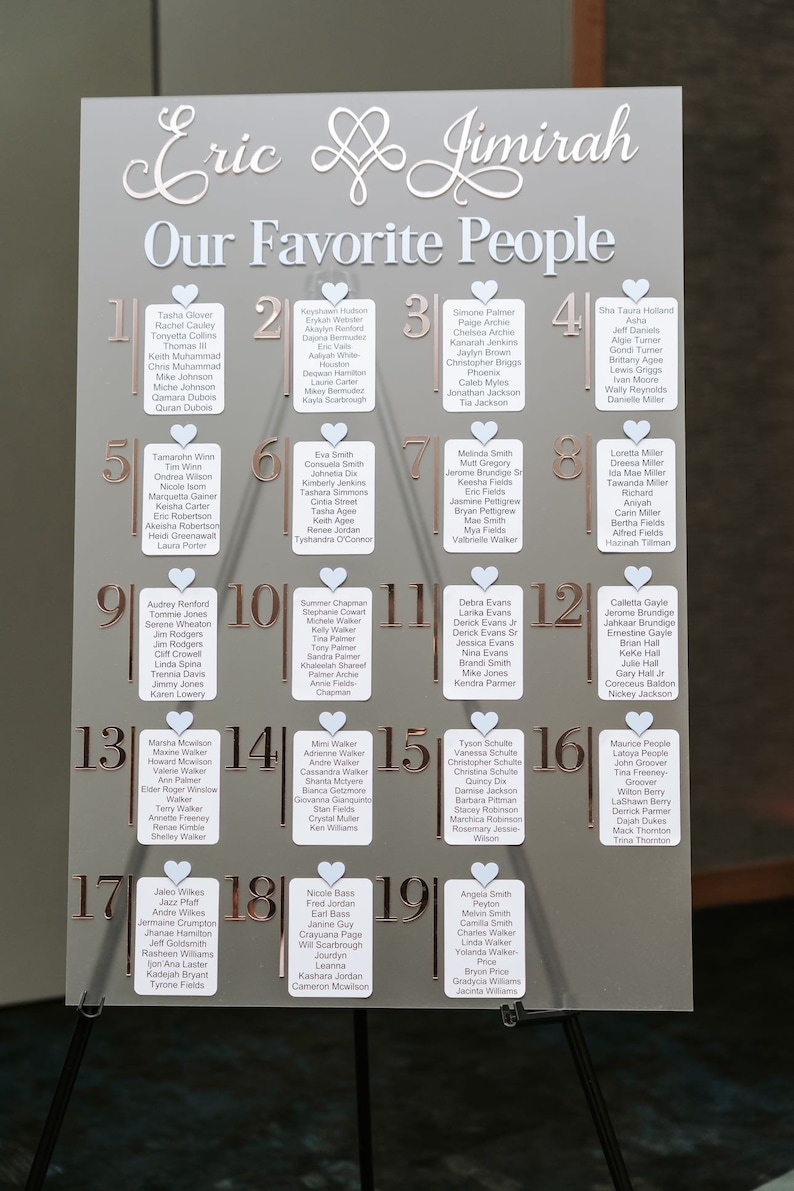 Eric Jimirah
Our Favorite People
1
Tasha Glover
Rachel Cauley
Tonyetta Collins
Thomas III
Keith Muhammad
Chris Muhammad
Mike Johnson
Miche Johnson
Qamara Dubois
Quran Dubois
2
Keyshawn Hudson
Erykah Webster
Akaylyn Renford
Dajona Bermudez
Eric Vails
Aaliyah White-
Houston
Deqwan Hamilton
Laurie Carter
Mikey Bermudez
Kayla Scarbrough
3
Simone Palmer
Paige Archie
Chelsea Archie
Kanarah Jenkins
Jaylyn Brown
Christopher Briggs
Phoenix
Caleb Myles
Jonathan Jackson
Tia Jackson
4
Sha Taura Holland
Asha
Jeff Daniels
Algie Turner
Gondi Turner
Brittany Agee
Lewis Griggs
Ivan Moore
Wally Reynolds
Danielle Miller
5
Tamarohn Winn
Tim Winn
Ondrea Wilson
Nicole Isom
Marquetta Gainer
Keisha Carter
Eric Robertson
Akeisha Robertson
Heidi Greenawalt
Laura Porter
6
Eva Smith
Consuela Smith
Johnetia Dix
Kimberly Jenkins
Tashara Simmons
Cintia Street
Tasha Agee
Keith Agee
Renee Jordan
Tyshandra O'Connor
7
Melinda Smith
Mutt Gregory
Jerome Brundige Sr
Keesha Fields
Eric Fields
Jasmine Pettigrew
Bryan Pettigrew
Mae Smith
Mya Fields
Valbrielle Walker
8
Loretta Miller
Dreesa Miller
Ida Mae Miller
Tawanda Miller
Richard
Aniyah
Carin Miller
Bertha Fields
Alfred Fields
Hazinah Tillman
9
Audrey Renford
Tommie Jones
Serene Wheaton
Jim Rodgers
Jim Rodgers
Cliff Crowell
Linda Spina
Trennia Davis
Jimmy Jones
Karen Lowery
10
Summer Chapman
Stephanie Cowart
Michele Walker
Kelly Walker
Tina Palmer
Tony Palmer
Sandra Palmer
Khaleelah Shareef
Palmer Archie
Annie Fields-
Chapman
11
Debra Evans
Larika Evans
Derick Evans Jr
Derick Evans Sr
Jessica Evans
Nina Evans
Brandi Smith
Mike Jones
Kendra Parmer
12
Calletta Gayle
Jerome Brundige
Jahkaar Brundige
Ernestine Gayle
Brian Hall
KeKe Hall
Julie Hall
Gary Hall Jr
Coreceus Baldon
Nickey Jackson
13
Marsha Mcwilson
Maxine Walker
Howard Mcwilson
Valerie Walker
Ann Palmer
Elder Roger Winslow
Walker
Terry Walker
Annette Freeney
Renae Kimble
Shelley Walker
14
Mimi Walker
Adrienne Walker
Andre Walker
Cassandra Walker
Shanta Mctyere
Bianca Getzmore
Giovanna Gianquinto
Stan Fields
Crystal Muller
Ken Williams
15
Tyson Schulte
Vanessa Schulte
Christopher Schulte
Christina Schulte
Quincy Dix
Damise Jackson
Barbara Pittman
Stacey Robinson
Marchica Robinson
Rosemary Jessie-
Wilson
16
Maurice People
Latoya People
John Groover
Tina Freeney-
Groover
Wilton Berry
LaShawn Berry
Derrick Parmer
Dajah Dukes
Mack Thornton
Trina Thornton
17
Jaleo Wilkes
Jazz Pfaff
Andre Wilkes
Jermaine Crumpton
Jhanae Hamilton
Jeff Goldsmith
Rasheen Williams
Ijon'Ana Laster
Kadejah Bryant
Tyrone Fields
18
Nicole Bass
Fred Jordan
Earl Bass
Janine Guy
Crayuana Page
Will Scarbrough
Jourdyn
Leanna
Kashara Jordan
Cameron Mcwilson
19
Angela Smith
Peyton
Melvin Smith
Camilla Smith
Charles Walker
Linda Walker
Yolanda Walker-
Price
Bryon Price
Gradycia Williams
Jacinta Williams